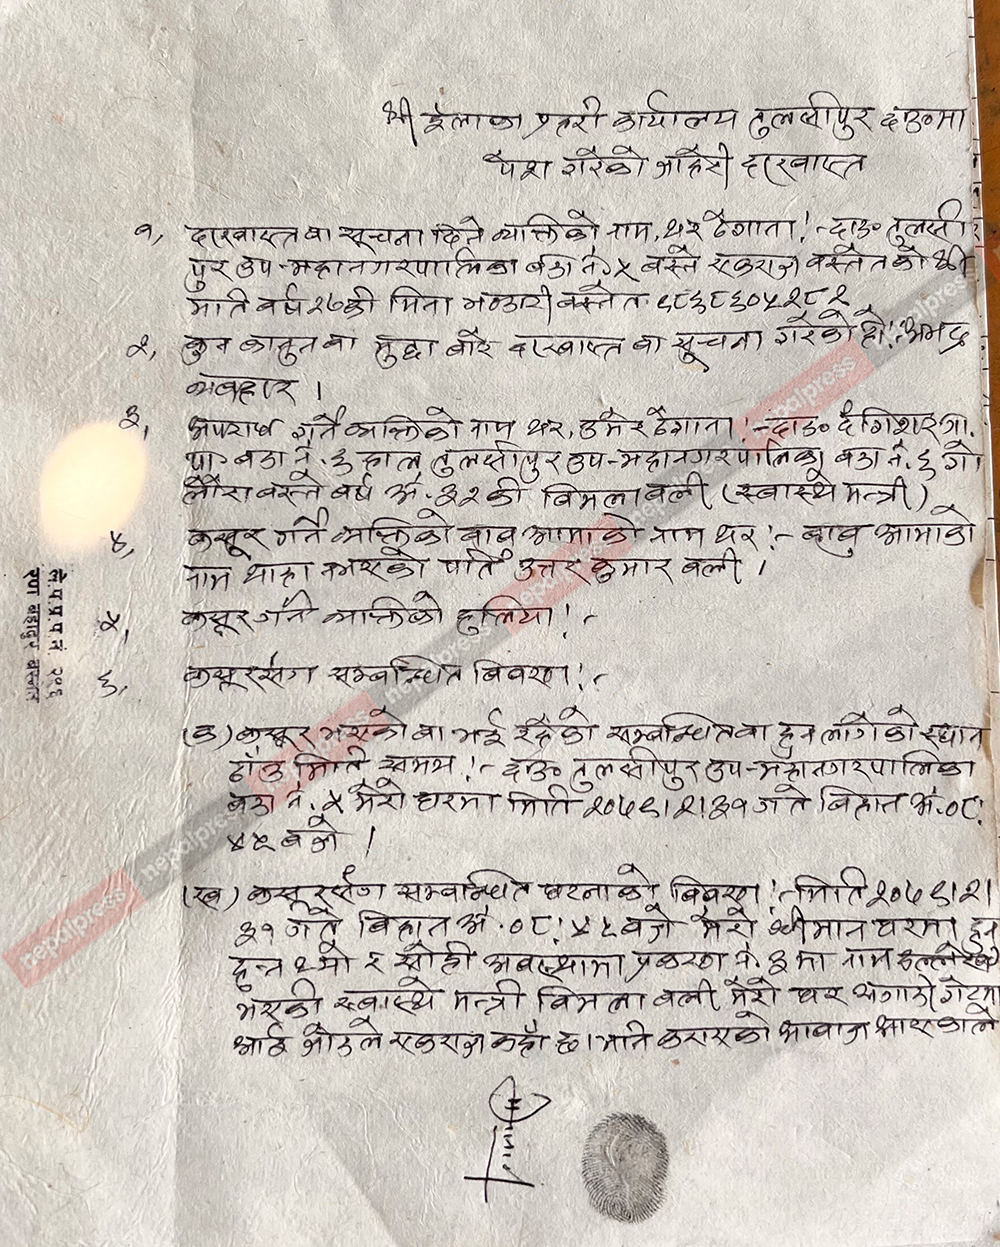 श्री ईलाका प्रहरी कार्यालय तुलसीपुर दाङमा
पेश गरेको जाहेरी दरखास्त
१, दरखास्त वा सूचना दिने व्यक्तिको नाम, थर ठेगाना!- दाङ तुलसी
पुर उप-महानगरपालिका वडा नं. ५ बस्ने एकराज वस्नेतको श्री
मति वर्ष २७ की मिना भण्डारी वस्नेत ९८६८६०५२८२
२, कुन कानुन वा मुद्दा बारे दरखास्त वा सूचना गरेको हो!- अभद्र
व्यवहार ।
३, अपराध गर्ने व्यक्तिको नाम थर, उमेर ठेगाना!- दाङ दंगिशरण गा.
पा. वडा नं. ३ हाल तुलसीपुर उप-महानगरपालिका वडा नं. ६
बस्ने वर्ष अं. ३२ की बिमला वली (स्वास्थ्ये मन्त्री)
४, कसूर गर्ने व्यक्तिको बाबु आमाको नाम थर!- बाबु आमाको
नाम थाहा नभएको पति उत्तर कुमार वली ।
५, कसूर गर्ने व्यक्तिको हुलिया!-
६, कसूरसंग सम्बन्धित विवरण!-
(क) कसूर भएको वा भई रहेको सम्बन्धित वा हुन लागेको स्थान
ठाँउ मिति समय!- दाङ तुलसीपुर उप-महानगरपालिका
वडा नं. ५ मेरो घरमा मिति २०७९।२।३१ गते बिहान अं. ०८:
४५ बजे ।
(ख) कसूरसंग सम्बन्धित घटनाको बिवरण!- मिति २०७९।२।
३१ गते बिहान अं. ०८:४५ बजे मेरो श्रीमान घरमा हुनु
हुन्न थ्यो र सोही अवस्थामा प्रकरण नं. ३ मा नाम उल्लेख
भएकी स्वास्थ्ये मन्त्री बिमला वली मेरो घर अगाडी गेटमा
आई एकराज कहाँ छ । भनि कराएको आवाज आएकाले
मिना
नेपालप्रेस
nepalpress
nepalpress
nepalpress
nepalpress
ले.प.प्र.प.नं. २९६